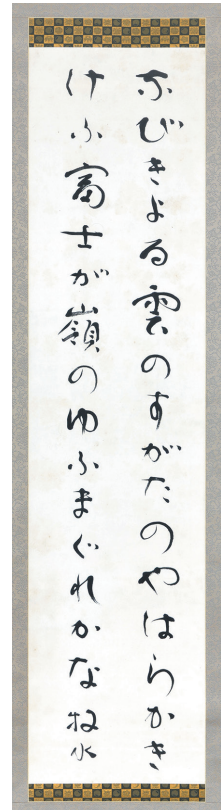 なびきよる雲のすがたのやはらかき
けふ富士が嶺のゆふまぐれかな 牧水